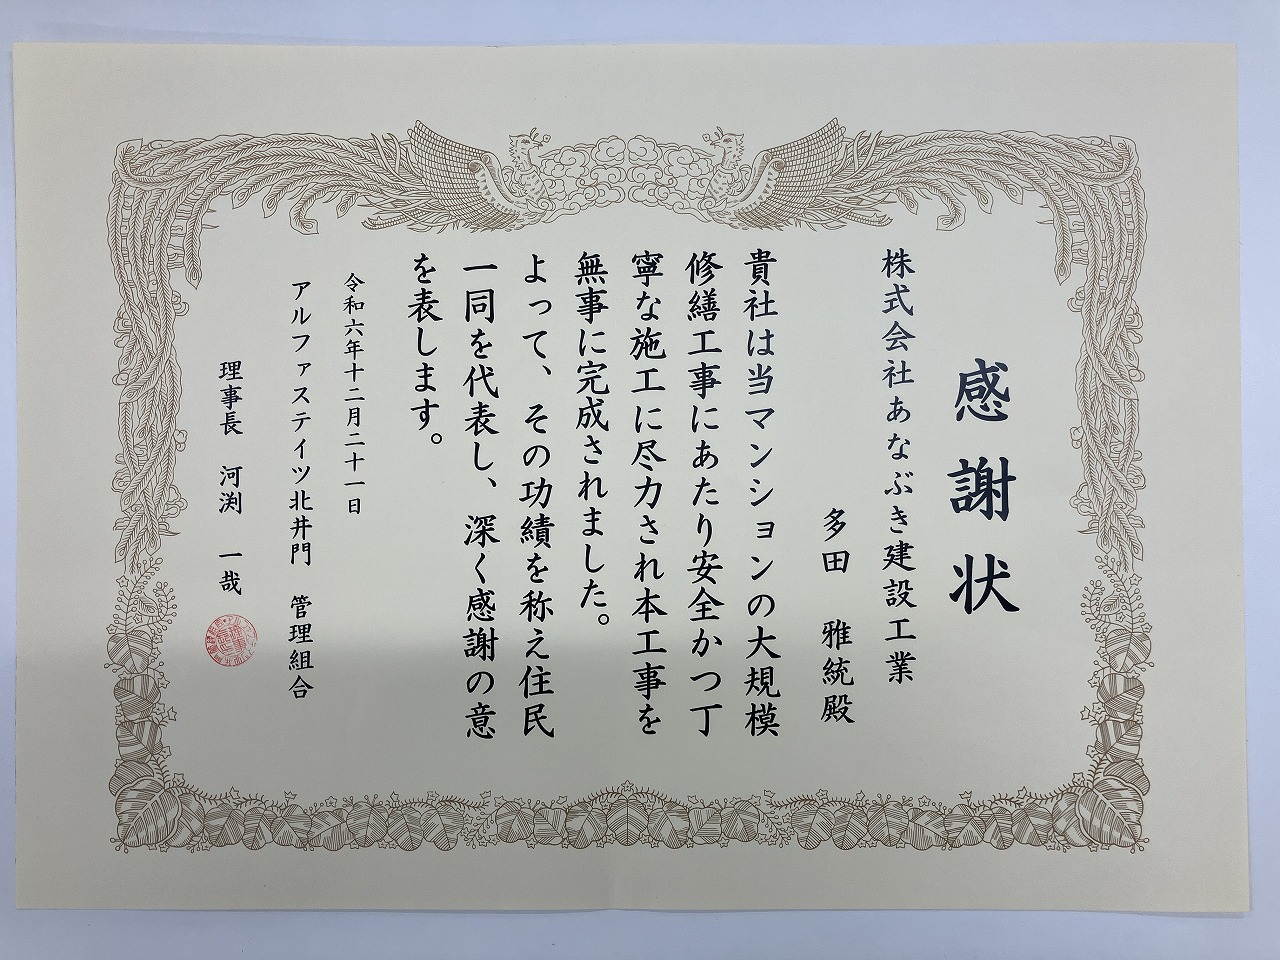 感謝状
株式会社あなぶき建設工業
多田 雅統殿
貴社は当マンションの大規模
修繕工事にあたり安全かつ丁
寧な施工に尽力され本工事を
無事に完成されました。
よって、その功績を称え住民
一同を代表し、深く感謝の意
を表します。
令和六年十二月二十一日
アルファステイツ北井門 管理組合
理事長 河渕 一哉